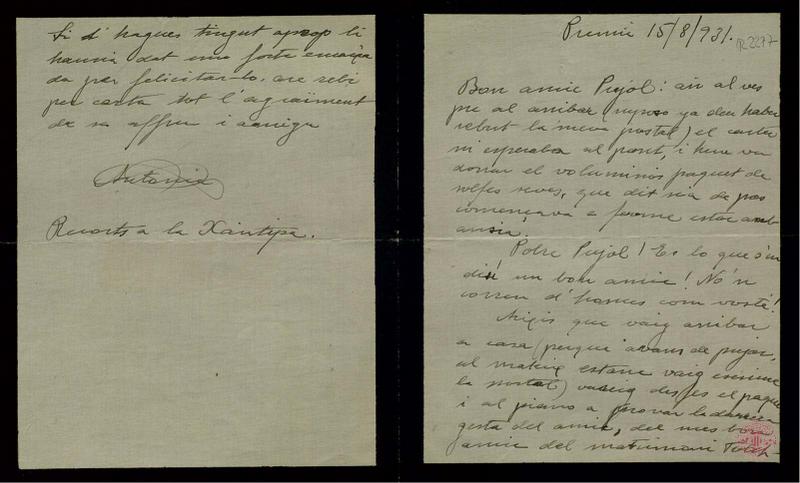 Si d'hagues tingut aprop li
hauria dat una forta encaixa
da per felicitar-lo. are rebi
per carta tot l'agraïment
de sa affma i amiga
Antonia
Records a la Xantipa.
Premià 15/8/931.
R.2277
Bon amic Pujol: air al ves
pre al arribar (suposo ya deu haber
rebut la meva postal) el carter
m'esperaba al pont, i hem va
donar el voluminós paquet de
solfes seves, que dit sia de pas
començava a ferme estar amb
ansia.
Pobre Pujol! Es lo que s'en
diu un bon amic! No'n
corren d'homes com vosté!
Aixis que vaig arribar
a casa (perque avans de pujar,
al mateix estanc vaig escriure
la postal) vaig desfes el paque
i al piano a provar la darrera
gesta del amic, del mes bon
amic del matrimoni